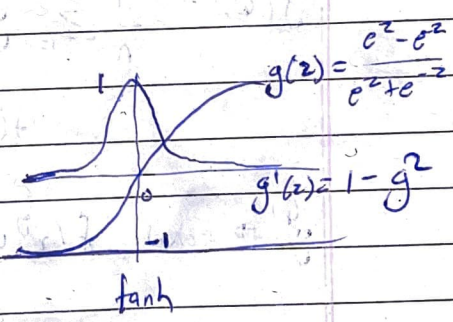 1
g(z) = e^z - e^-z / e^z + e^-z
0
g'(z) = 1 - g^2
-1
tanh